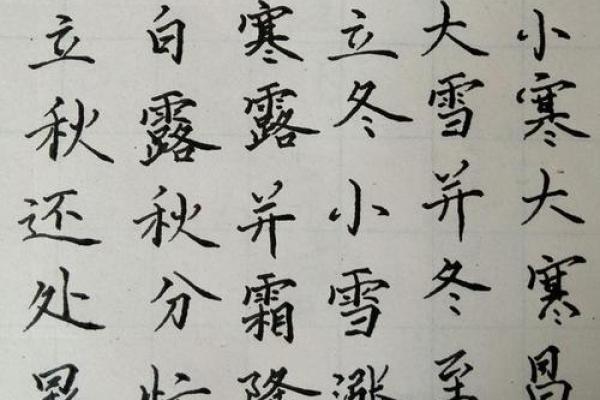 立秋还处
白露秋分忙
寒露并霜降
立冬小雪涨
大雪并冬至
小寒大寒昌